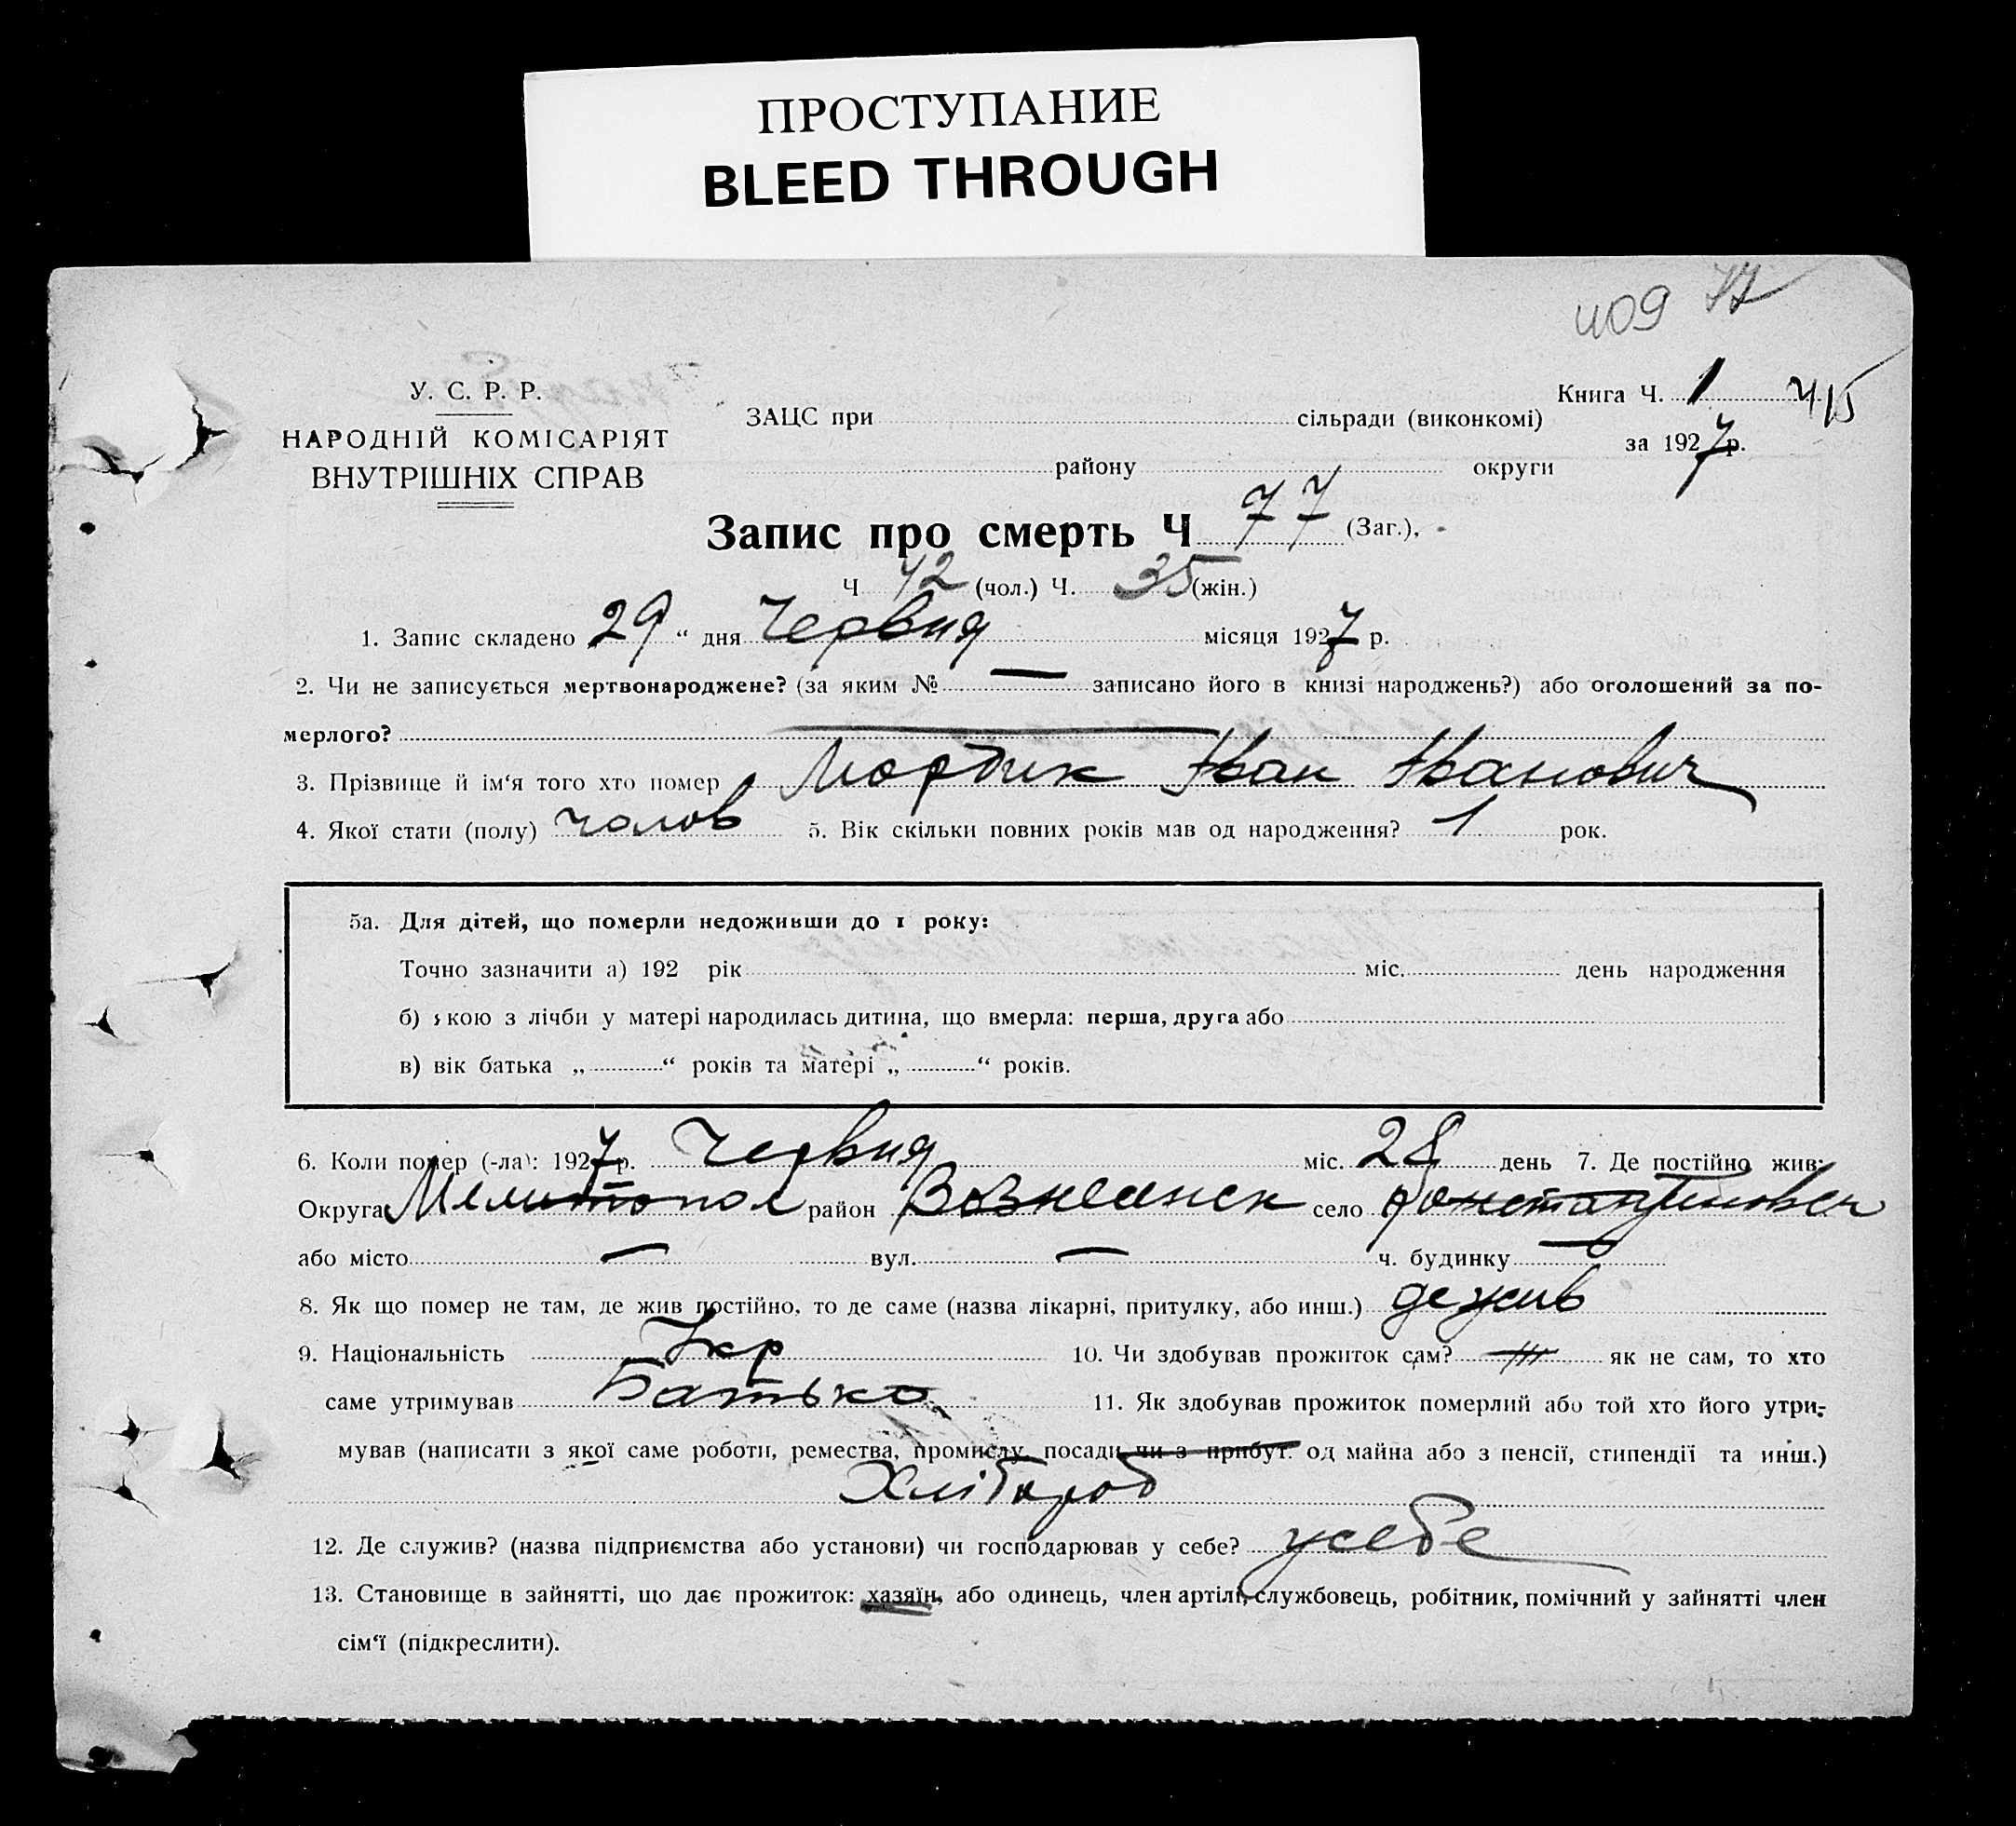 ПРОСТУПАНИЕ
BLEED THROUGH
409 77
У. С. Р. Р.
НАРОДНІЙ КОМІСАРІЯТ
ВНУТРІШНІХ СПРАВ
Книга Ч. 1 415
ЗАЦС при сільради (виконкомі)
за 1927 р.
району округи
Запис про смерть Ч 77 (Заг.),
Ч 42 (чол.) Ч. 35 (жін.)
1. Запис складено 29 “ дня Червня місяця 1927 р.
2. Чи не записується мертвонароджене? (за яким № — записано його в книзі народжень?) або оголошений за по-
мерлого? —
3. Прізвище й ім‘я того хто помер Мордик Іван Іванович
4. Якої стати (полу) чолов 5. Вік скільки повних років мав од народження? 1 рок.
5а. Для дітей, що померли недоживши до 1 року:
Точно зазначити а) 192 рік міс. день народження
б) якою з лічби у матері народилась дитина, що вмерла: перша, друга або
в) вік батька „ “ років та матері „ “ років.
6. Коли помер (-ла): 1927 р. Червня міс. 28 день 7. Де постійно жив:
Округа Мелитопол район Вознесенск село
або місто — вул. — ч. будинку —
8. Як що помер не там, де жив постійно, то де саме (назва лікарні, притулку, або инш.) де жив
9. Національність Укр 10. Чи здобував прожиток сам? як не сам, то хто
саме утримував Батько 11. Як здобував прожиток померлий або той хто його утри-
мував (написати з якої саме роботи, ремества, промислу, посади чи з прибут. од майна або з пенсії, стипендії та инш.)
Хлібороб
12. Де служив? (назва підприємства або установи) чи господарював у себе? усебе
13. Становище в зайнятті, що дає прожиток: хазяїн, або одинець, член артілі, службовець, робітник, помічний у зайнятті член
сім‘ї (підкреслити).